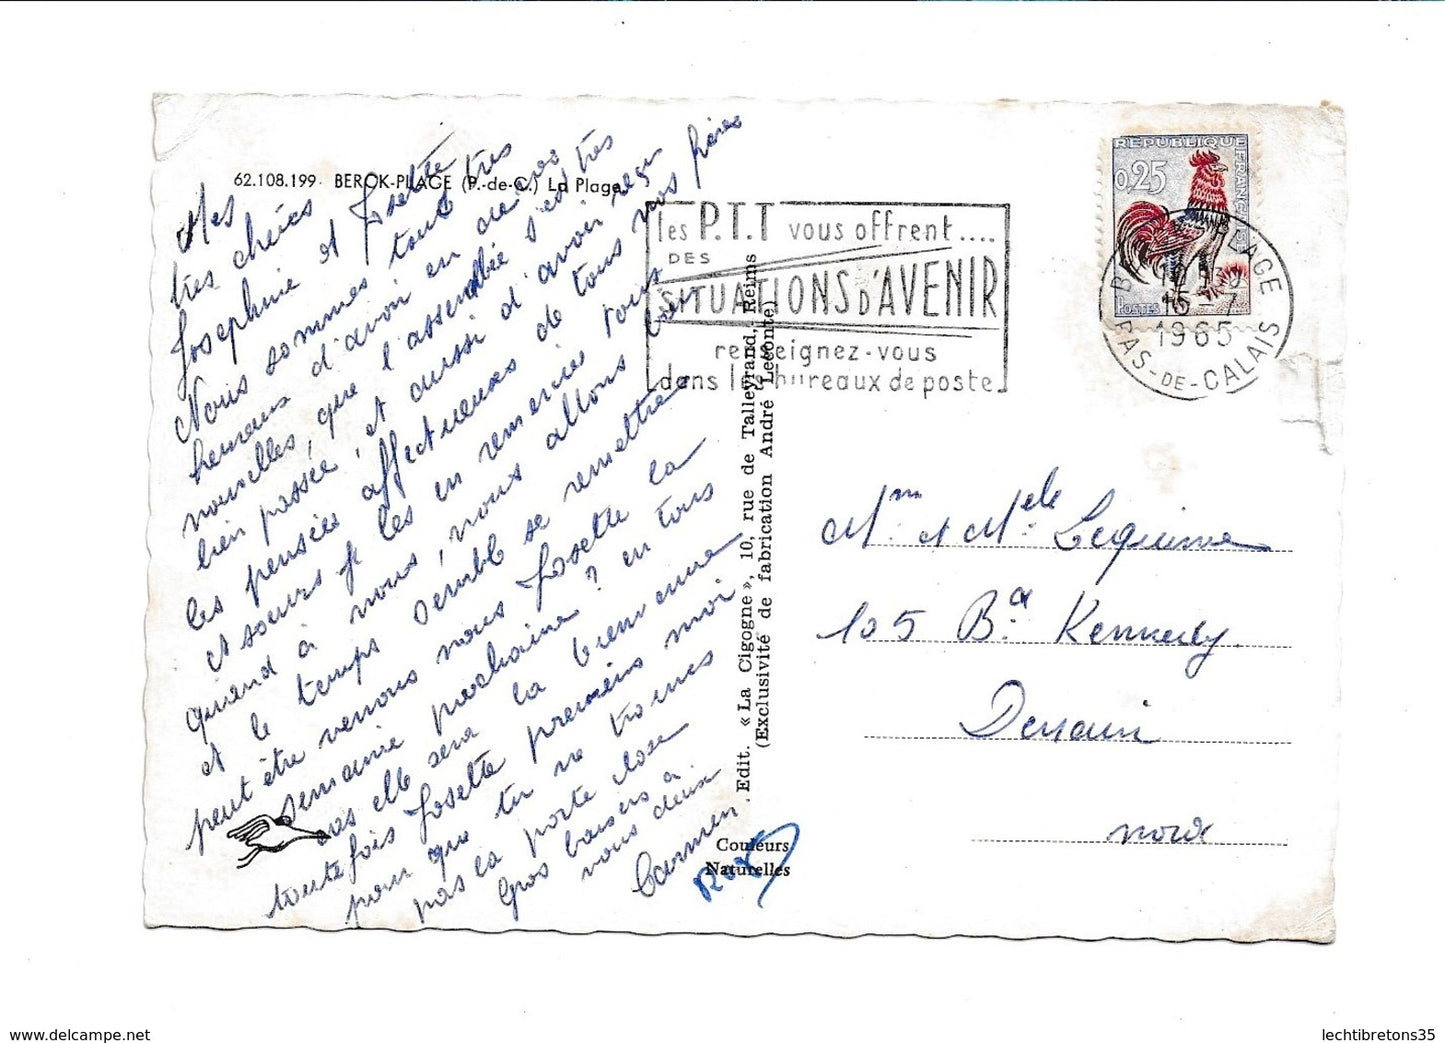 62.108.199 BERCK-PLAGE (P.-de-C.) La Plage
Mes
très chères
Josephine et Josette
Nous sommes tous très
heureux d'avoir eu de vos
nouvelles, que l'assemblée s'est très
bien passée, et aussi d'avoir reçu
les pensées affectueuses de tous nos frères
et sœurs je les en remercie tous
quand à nous, nous allons bien
et le temps semble se remettre
peut être verrons nous Josette la
semaine prochaine? en tous
cas elle sera la bienvenue
toutefois Josette previens moi
pour que tu ne trouves
pas la porte close
Gros baisers à
vous deux
Carmen
les P.T.T vous offrent....
DES
SITUATIONS D'AVENIR
renseignez-vous
dans les bureaux de poste
REPUBLIQUE FRANÇAISE
0,25
POSTES
BERCK PLAGE
15 - 7
1965
PAS-DE-CALAIS
Edit. « La Cigogne », 10, rue de Talleyrand, Reims
(Exclusivité de fabrication André Leconte)
Couleurs
Naturelles
Mm et Melle Lequienne
105 Bd Kennedy.
Denain
nord
lechtibretons35